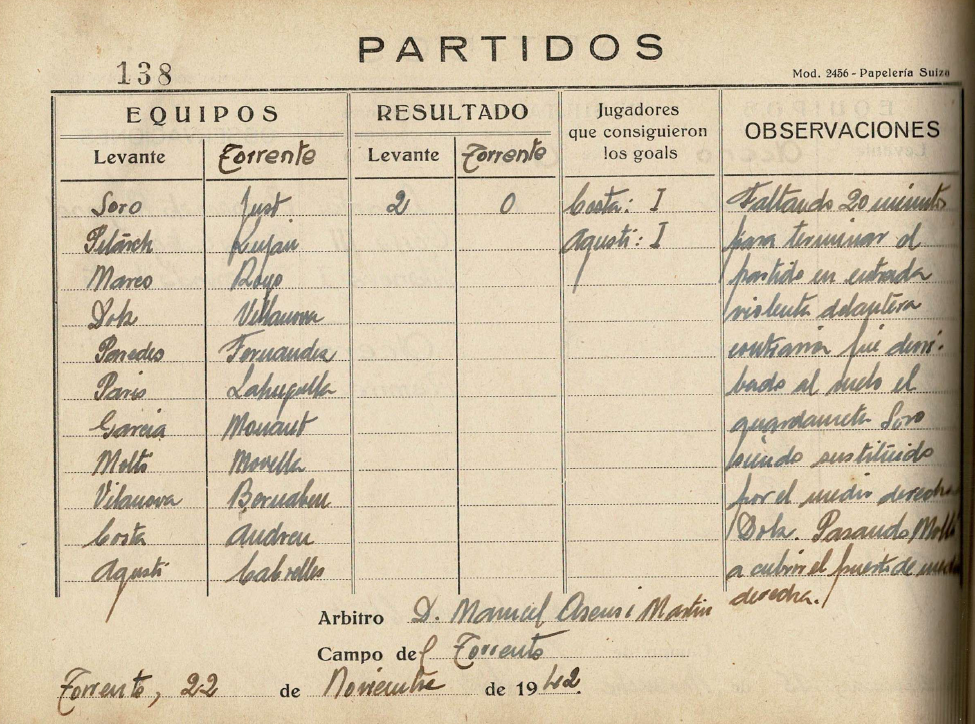 PARTIDOS
138
Mod. 2456 - Papelería Suiza
EQUIPOS RESULTADO Jugadores que consiguieron los goals OBSERVACIONES
Levante Torrente Levante Torrente
Soro Just 2 0 Costa: I Faltando 20 minutos
Pelàrch Lujan Agustí: I para terminar el
Marco Royo partido en entrada
Dolz Villanova violenta delantera
Paredes Fernandez contraria fue derri-
Paris bado al suelo el
Garcia Monaut guardameta Soro
Moltó Morella siendo sustituido
Vilanova Bernabeu por el medio derecha
Costa Andreu Dolz. Pasando Moltó
Agustí Cabrelles a cubrir el puesto de medio
derecha.
Arbitro D. Manuel Asensi Martin
Campo del Torrente
Torrente, 22 de Noviembre de 1942.